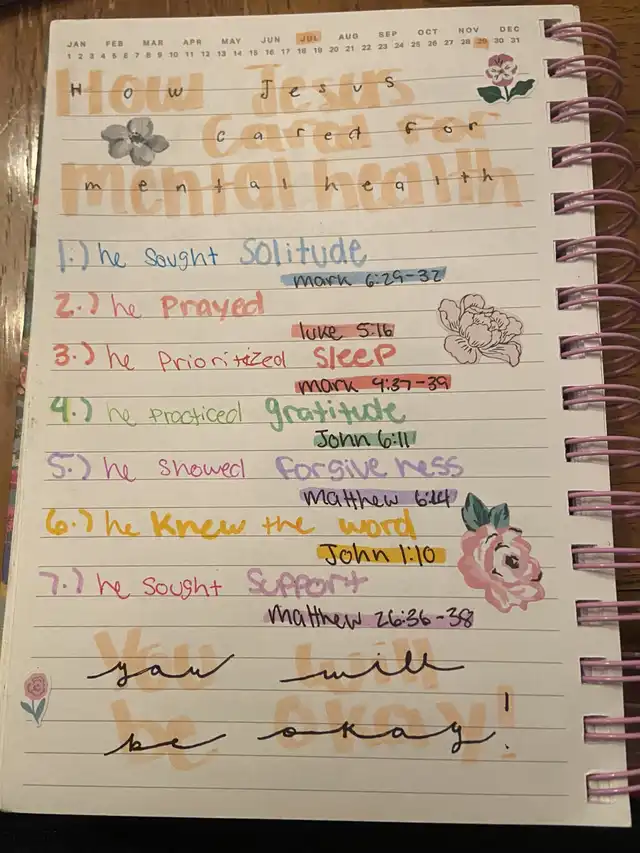 JAN FEB MAR APR MAY JUN JUL AUG SEP OCT NOV DEC
1 2 3 4 5 6 7 8 9 10 11 12 13 14 15 16 17 18 19 20 21 22 23 24 25 26 27 28 29 30 31
How Jesus
cared for
mental health
1.) he sought solitude
mark 6:29-32
2.) he prayed
luke 5:16
3.) he prioritized sleep
mark 4:37-39
4.) he practiced gratitude
John 6:11
5.) he showed forgiveness
matthew 6:14
6.) he knew the word
John 1:10
7.) he sought support
matthew 26:36-38
you will
be okay!